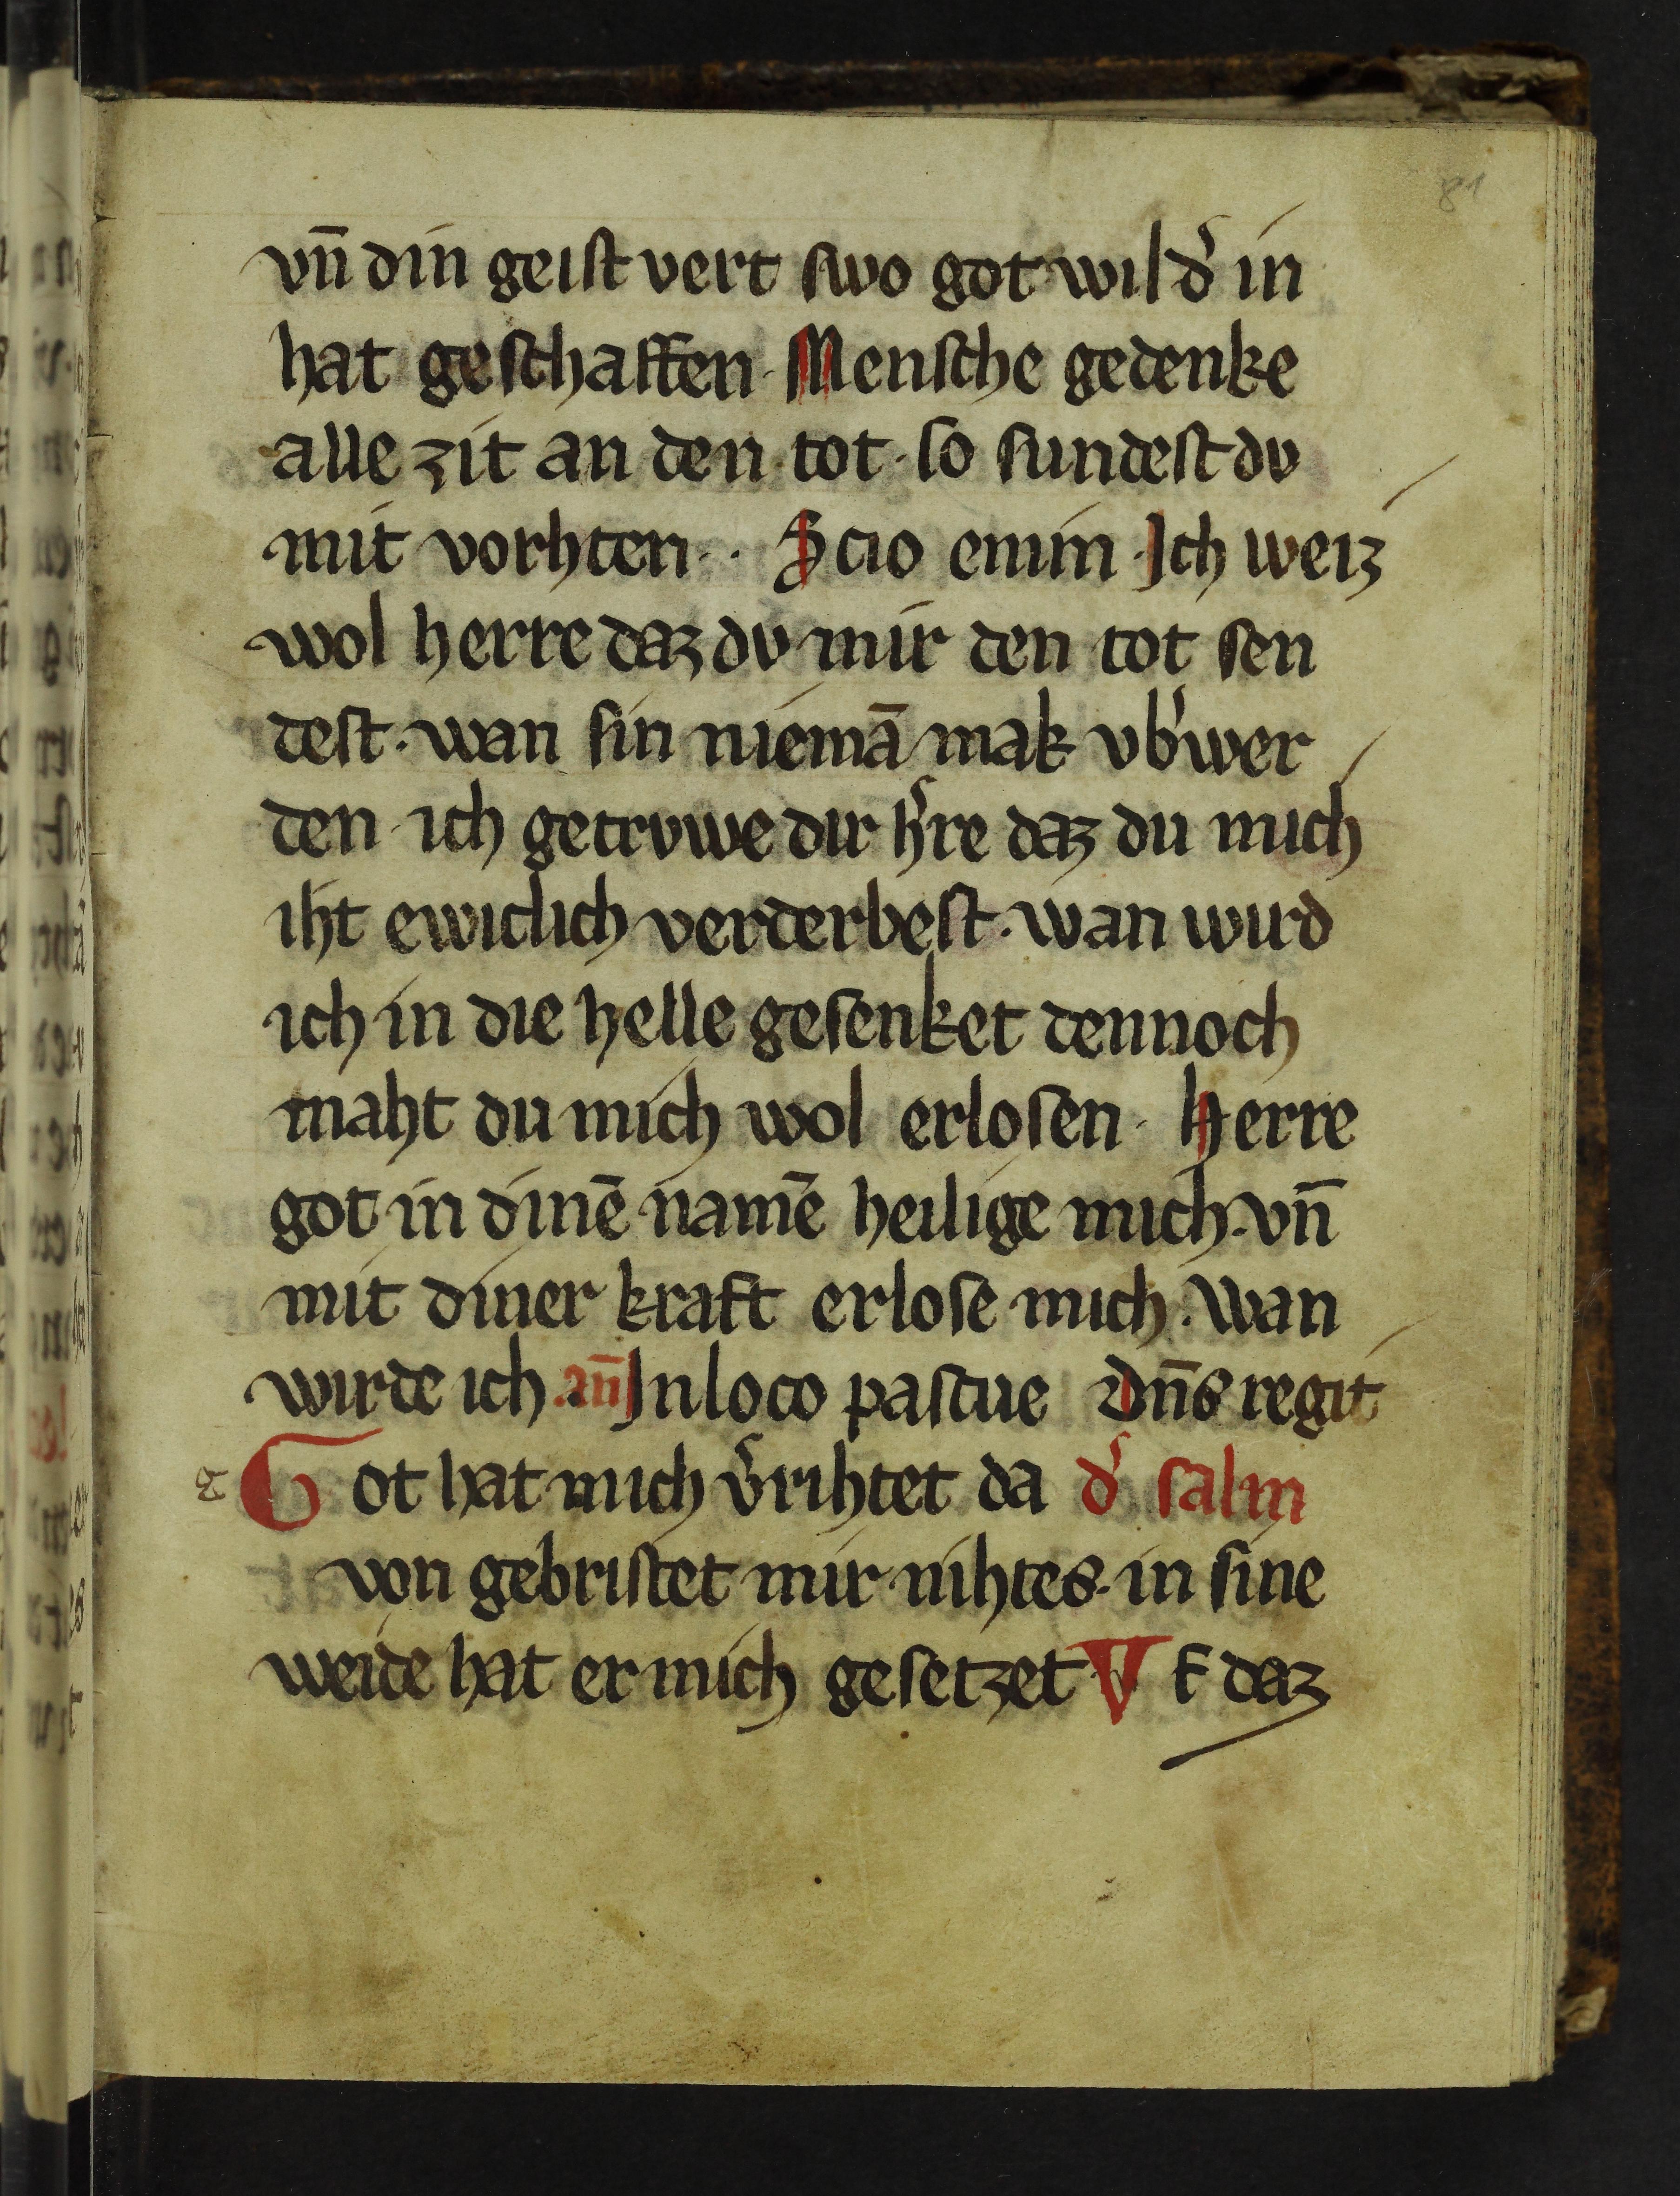 81
vn̄ din geist vert swo got wil d͛ in
hat geschaffen · Mensche gedenke
alle zit an den tot · so sundest dv
mit vorhten · · Scio enim · Ich weiz
wol herre daz dv mir den tot sen
dest · wan sin niemā mak vb͛wer
den · ich getrvwe dir h͛re daz du mich
iht ewiclich verderbest · wan wird
ich in die helle gesenket dennoch
maht du mich wol erlosen · Herre
got in dinē namē heilige mich · vn̄
mit diner kraft erlose mich · Wan
wirde ich · an̄ In loco pascue Dn̄s regit
Got hat mich v͛rihtet da d͛ salm
von gebristet mir nihtes · in sine
weide hat er mich gesetzet · Vf daz